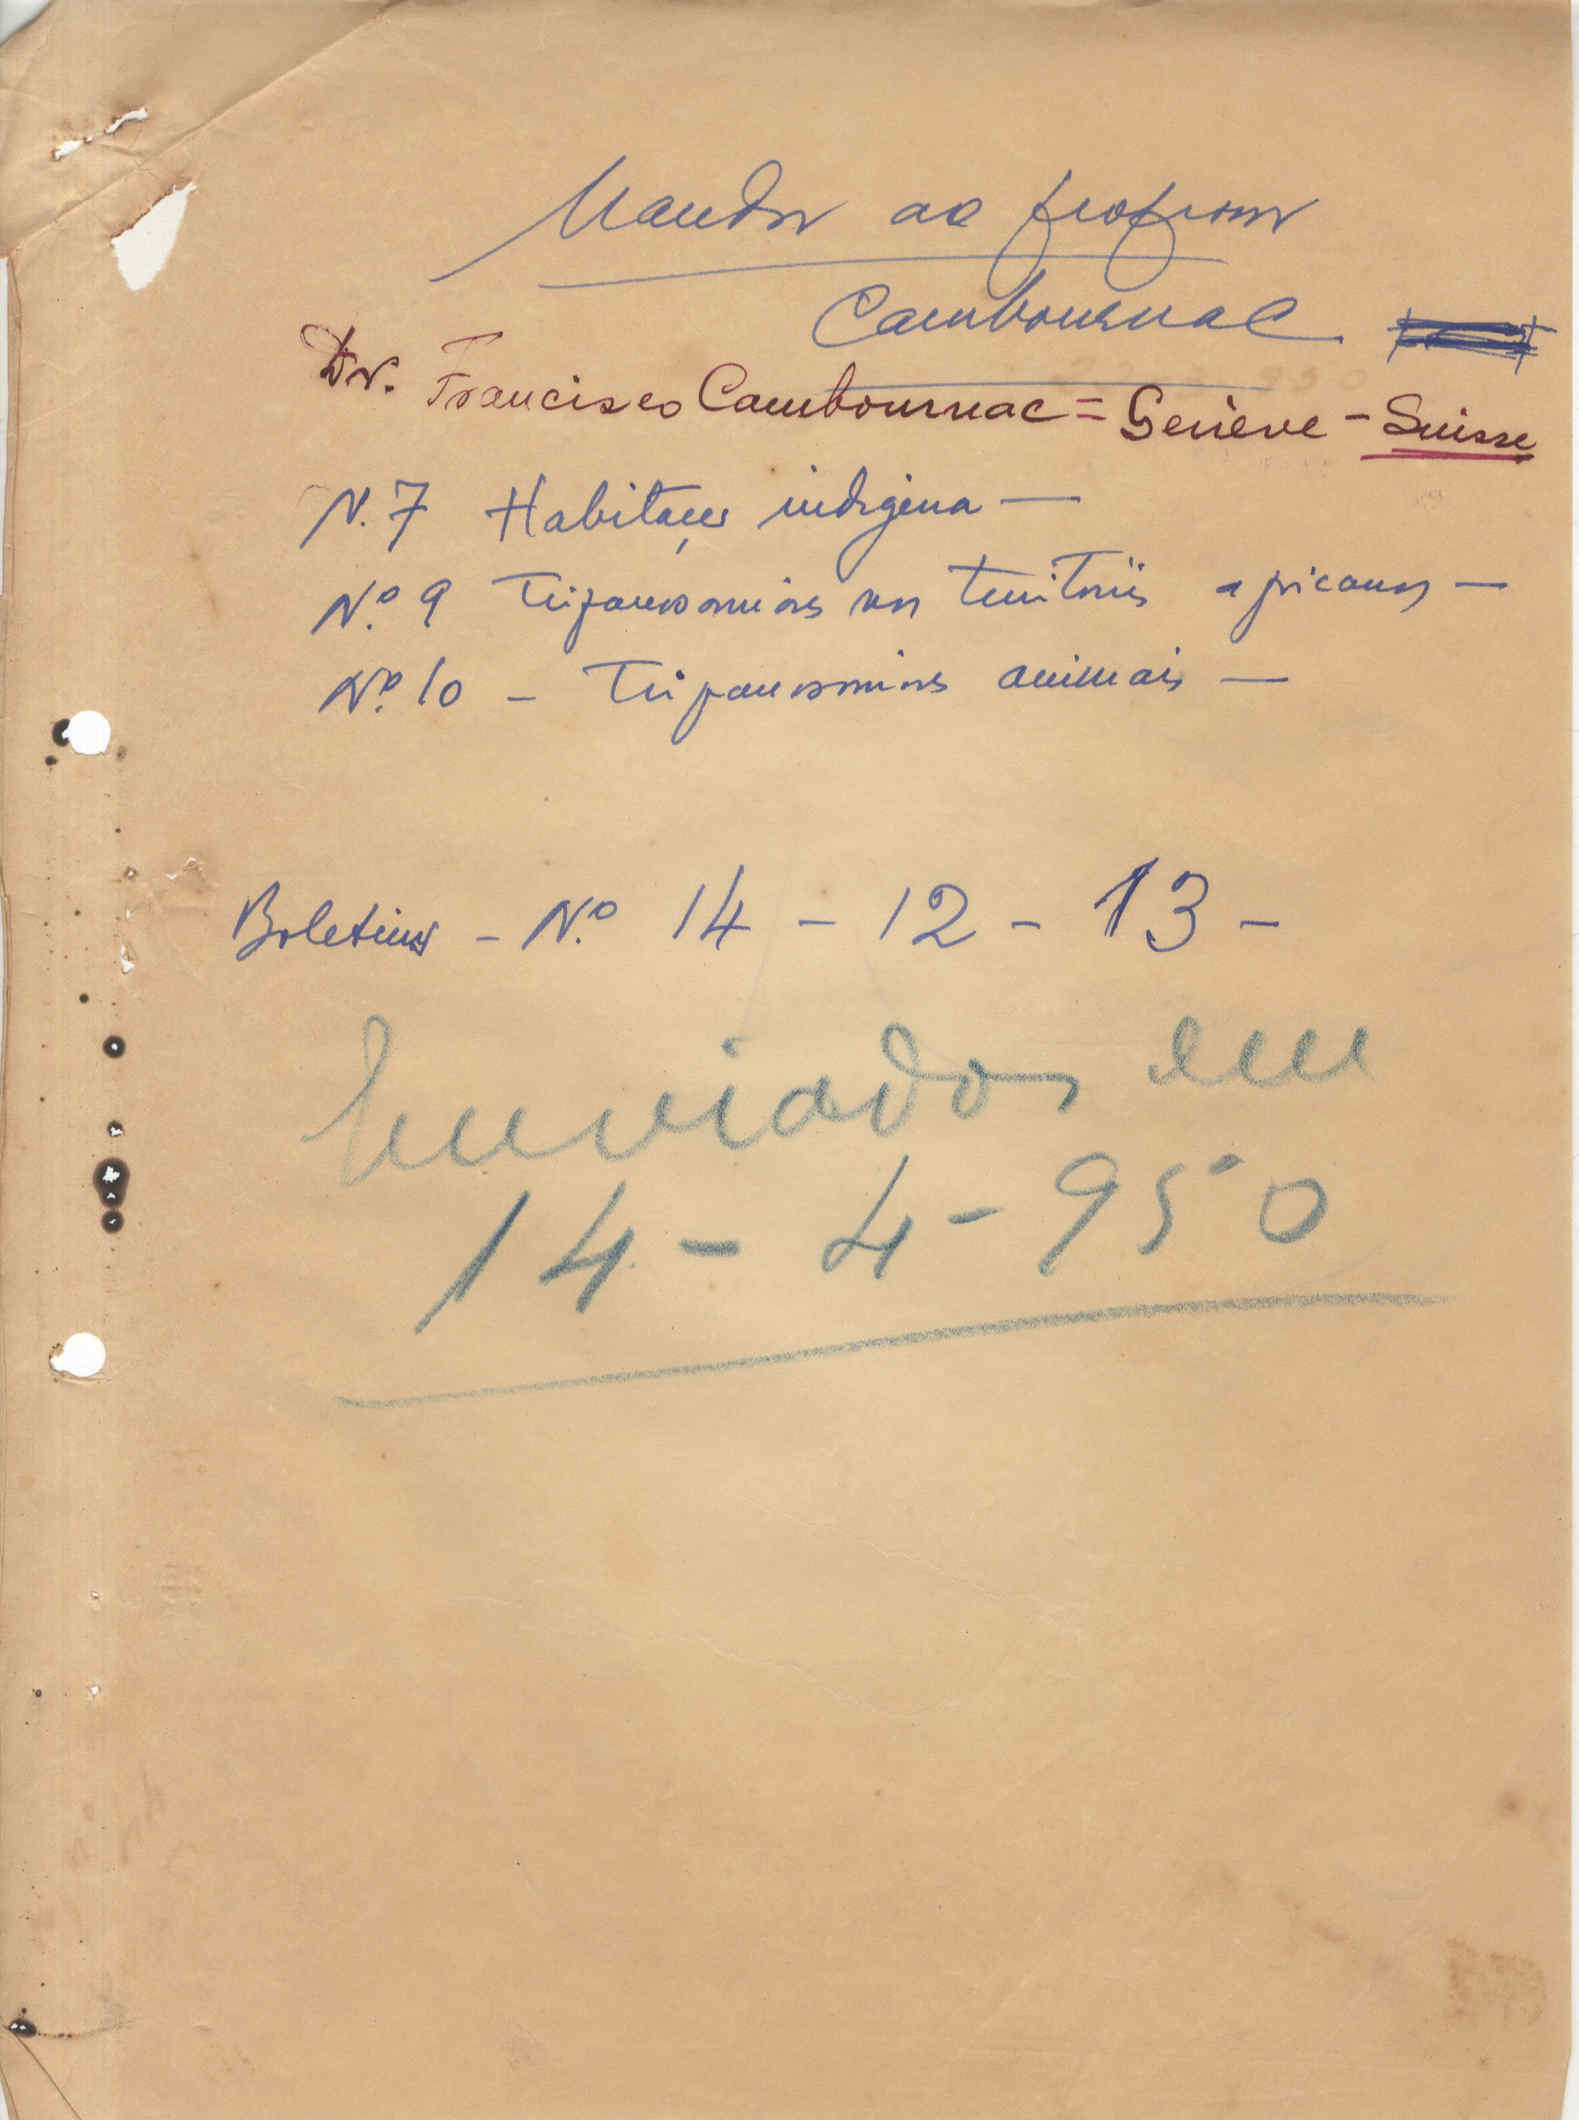 Mandar ao professor
Cambournac
Dr. Francisco Cambournac = Genève - Suisse
N. 7 Habitações indigena —
N.º 9 Tripanosomiases nos territórios africanos —
N.º 10 - Tripanosomiases animais —
Boletins - N.º 14 - 12 - 13 -
Enviados em
14 - 4 - 950